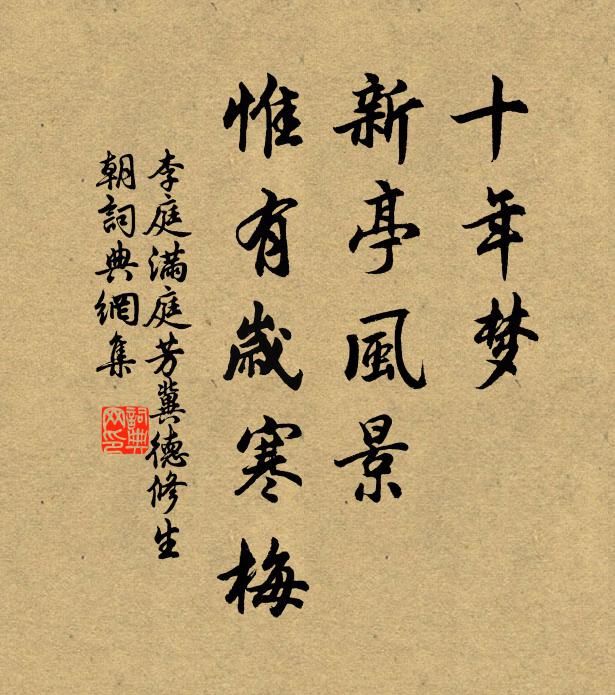 十年梦
新亭風景
惟有歲寒梅
李庭满庭芳冀德修生
朝詞典網集
詞典
网印